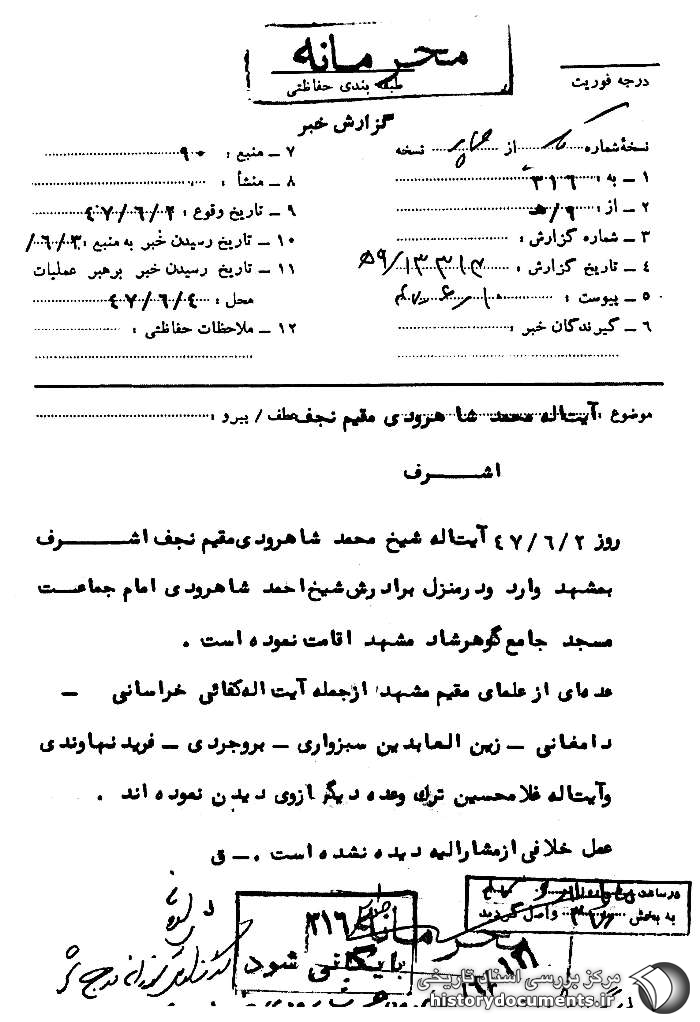 محرمانه
طبقه بندی حفاظتی
درجه فوریت
گزارش خبر
نسخهٔ شماره از نسخه
۱ ــ به : ۳۱۶
۲ ــ از : ۹/ه
۳ ــ شماره گزارش :
۴ ــ تاریخ گزارش :
۵ ــ پیوست :
۶ ــ گیرندگان خبر :
۷ ــ منبع : ۹۰
۸ ــ منشأ :
۹ ــ تاریخ وقوع : ۴۷/۶/۲
۱۰ ــ تاریخ رسیدن خبر به منبع : ۶/۳/
۱۱ ــ تاریخ رسیدن خبر برهبر عملیات
محل : ۴۷/۶/۴
۱۲ ــ ملاحظات حفاظتی :
موضوع : آیت‌اله محمد شاهرودی مقیم نجف عطف / پیرو :
اشـــرف
روز ۴۷/۶/۲ آیت‌اله شیخ محمد شاهرودی مقیم نجف اشــــرف
بمشهد وارد ودرمنزل برادرش شیخ احمد شاهرودی امام جماعت
مسجد جامع گوهرشاد مشهد اقامت نموده است .
عده‌ای از علمای مقیم مشهد ازجمله آیت اله کفائی خراسانی ــ
دامغانی ــ زین العابدین سبزواری ــ بروجردی ــ فرید نهاوندی
وآیت‌اله غلامحسین ترك وعده دیگر ازوی دیدن نموده اند .
عمل خلافی ازمشارالیه دیده نشده است . ــ ق
در ساعت
به بخش ۳۱۶ واصل گردید
۳۱۶
محرمانه
بایگانی شود
مرکز بررسی اسناد تاریخی
historydocuments.ir